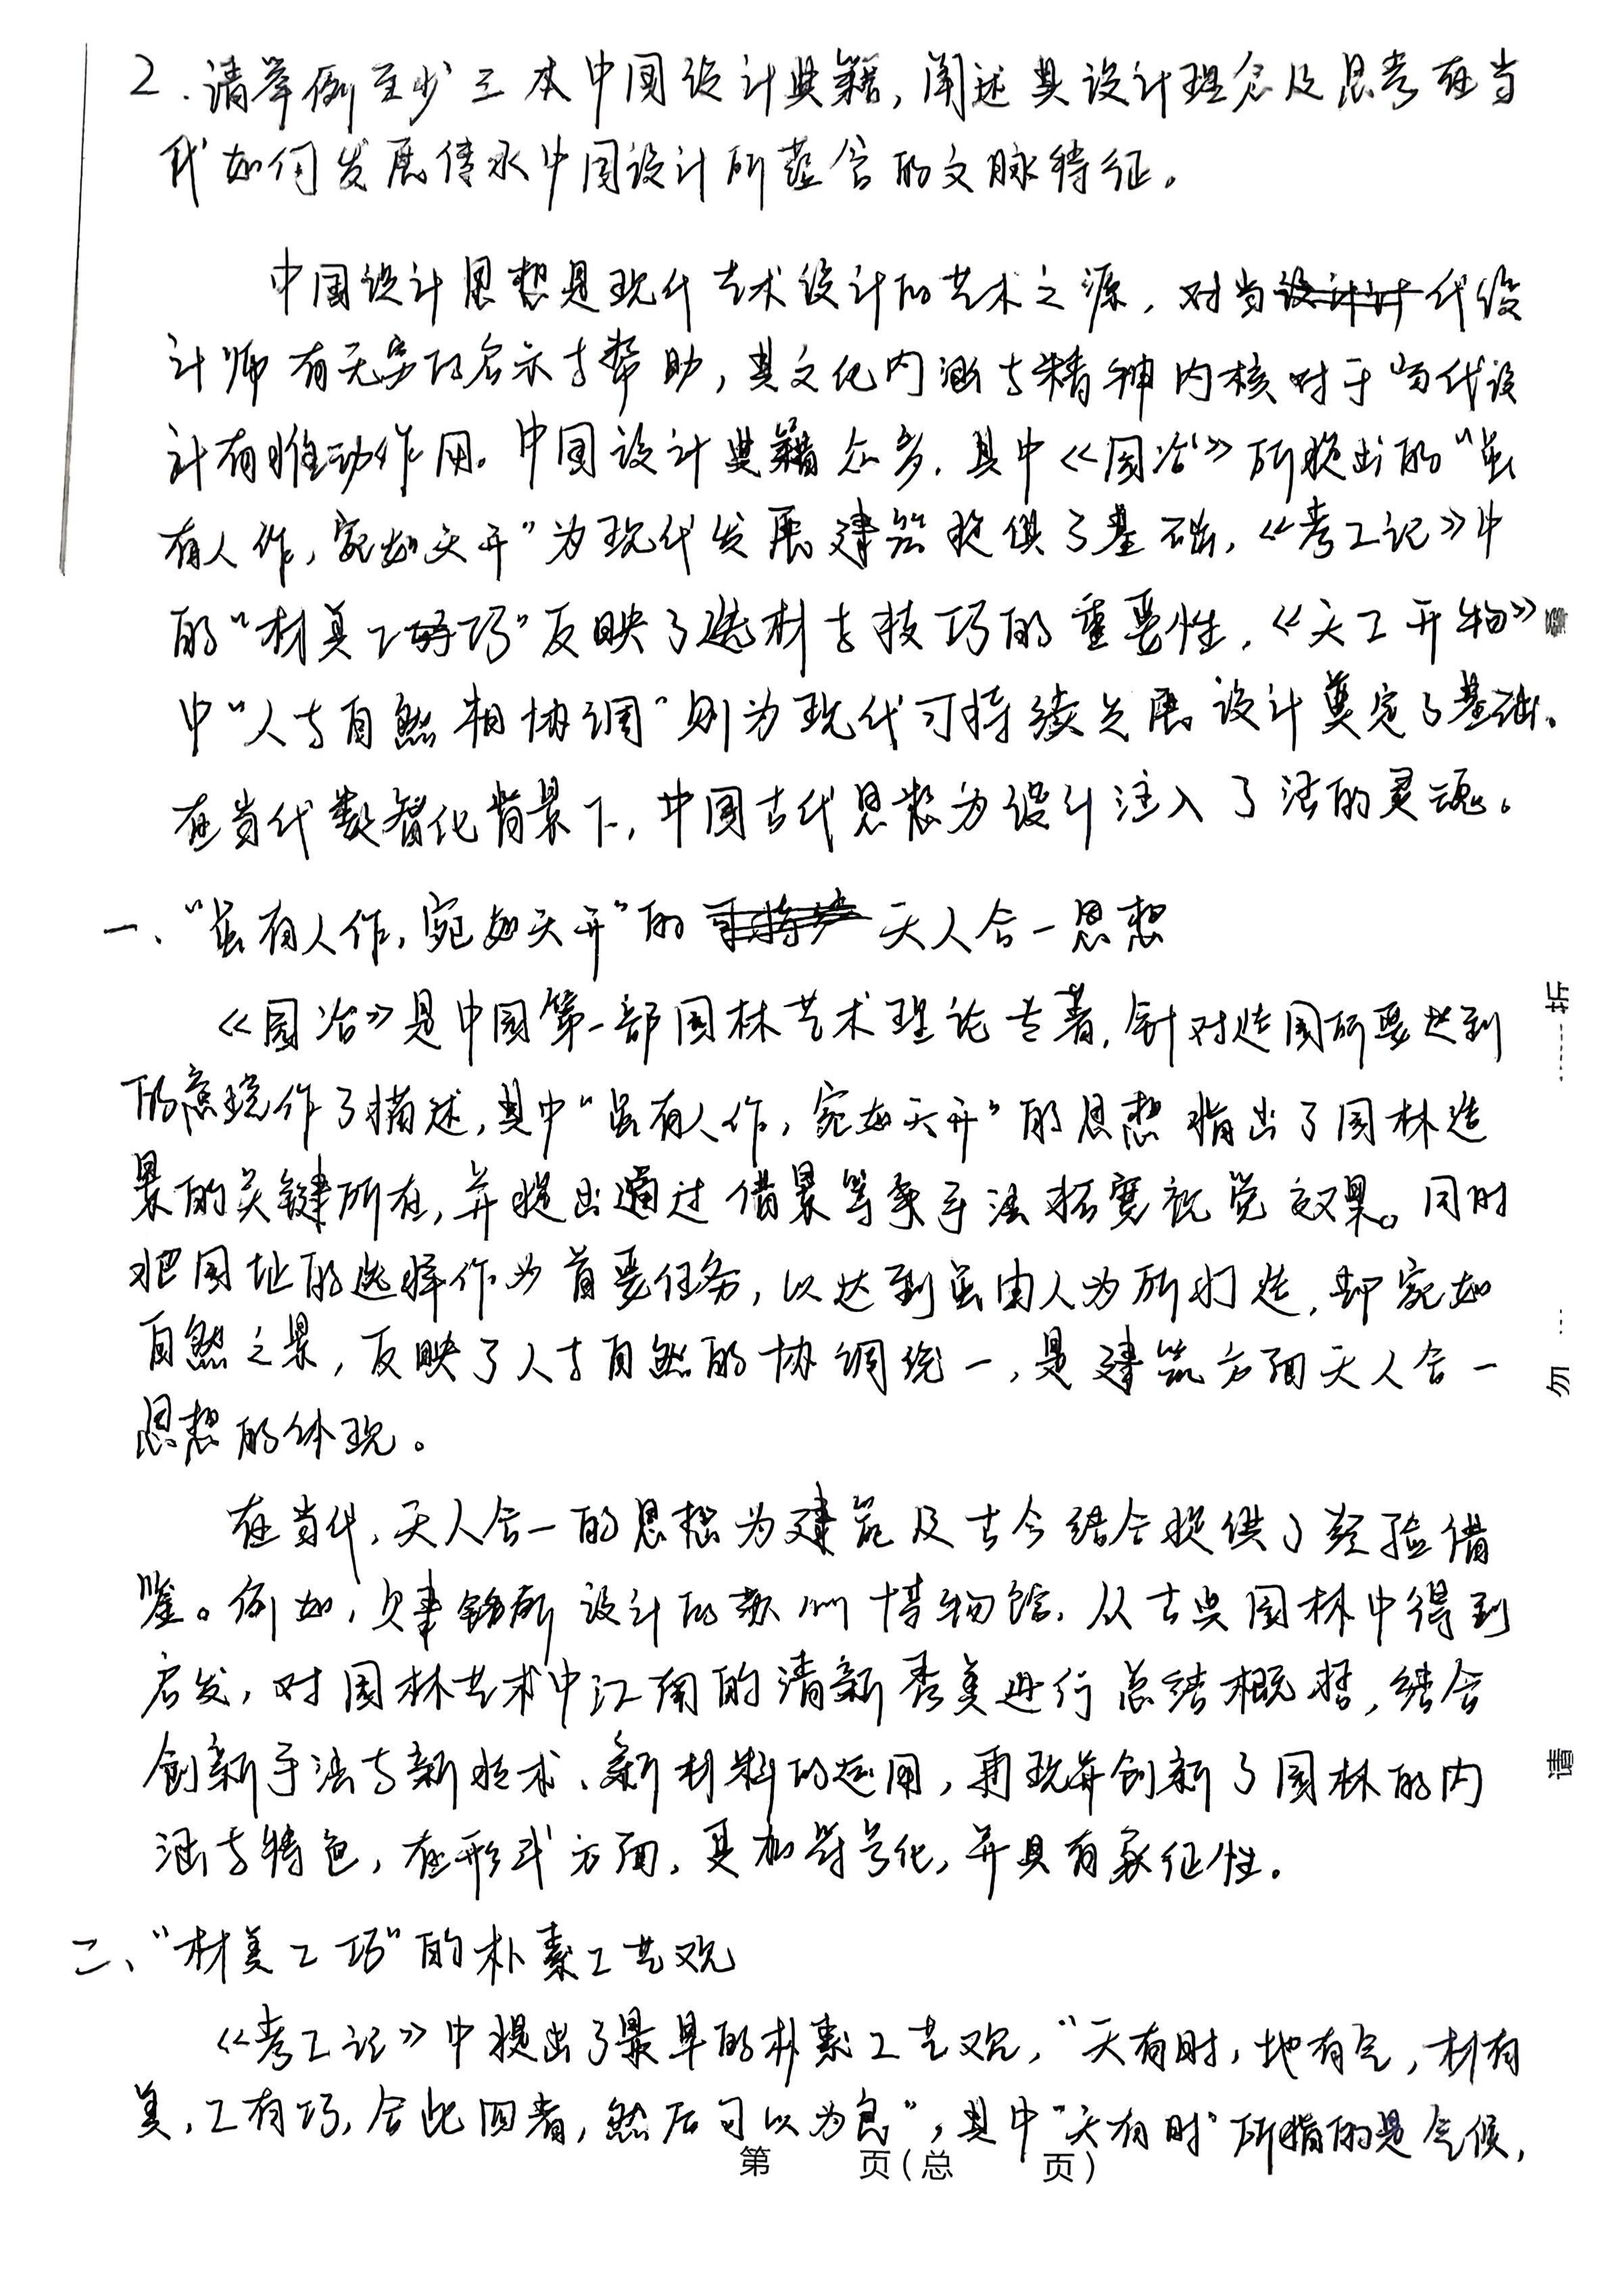 2.请举例至少三本中国设计典籍,阐述其设计理念及思考在当
代如何发展传承中国设计所蕴含的文脉特征。
中国设计思想是现代艺术设计的艺术之源,对当代设
计师有无穷的启示与帮助,其文化内涵与精神内核对于当代设
计有推动作用。中国设计典籍众多,其中《园冶》所提出的“虽
有人作,宛如天开”为现代发展建筑提供了基础,《考工记》中
的“材美工巧”反映了选材与技巧的重要性,《天工开物》
中“人与自然相协调”则为现代可持续发展设计奠定了基础。
在当代数智化背景下,中国古代思想为设计注入了活的灵魂。
一、“虽有人作,宛如天开”的天人合一思想
《园冶》是中国第一部园林艺术理论专著,针对造园所要达到
的意境作了描述,其中“虽有人作,宛如天开”的思想指出了园林造
景的关键所在,并提出通过借景等手法拓宽视觉效果。同时
把园址的选择作为首要任务,以达到虽由人为所打造,却宛如
自然之景,反映了人与自然的协调统一,是建筑方面天人合一
思想的体现。
在当代,天人合一的思想为建筑及古今结合提供了经验借
鉴。例如,贝聿铭所设计的苏州博物馆,从古典园林中得到
启发,对园林艺术中江南的清新秀美进行总结概括,结合
创新手法与新技术、新材料的运用,再现并创新了园林的内
涵与特色,在形式方面,更加符号化,并具有象征性。
二、“材美工巧”的朴素工艺观
《考工记》中提出了最早的朴素工艺观,“天有时,地有气,材有
美,工有巧,合此四者,然后可以为良”,其中“天有时”所指的是气候,
第 页(总 页)
折
勿
请